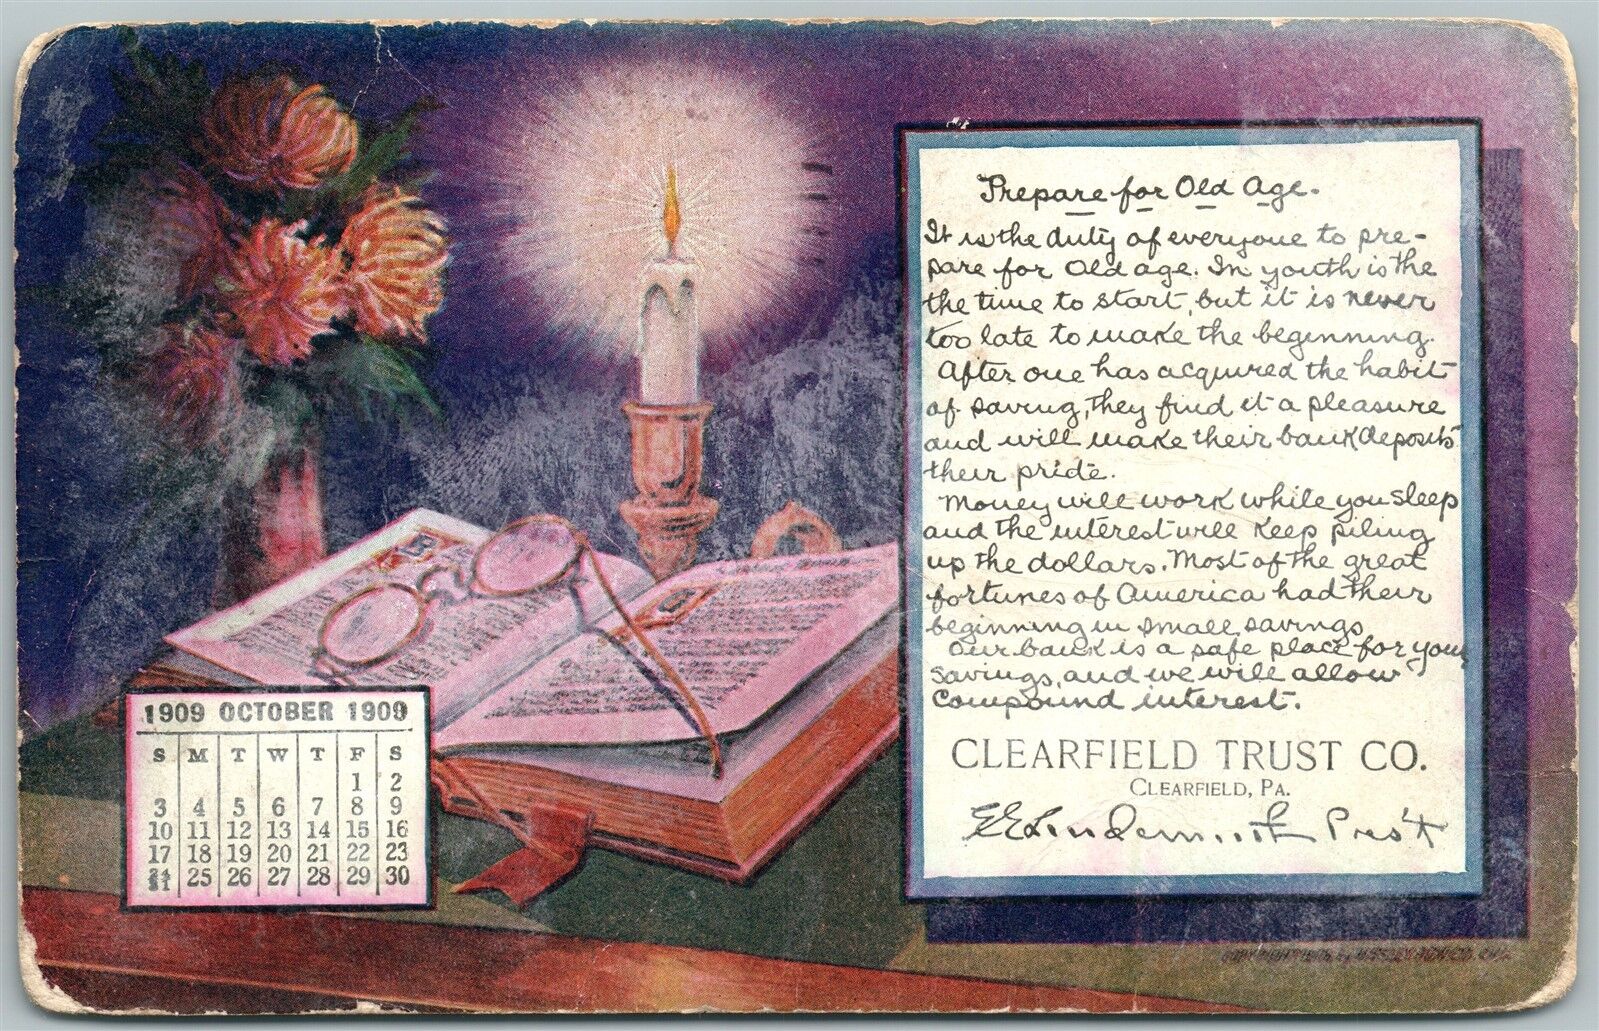 Prepare for Old Age.
It is the duty of everyone to pre-
pare for old age. In youth is the
the time to start, but it is never
too late to make the beginning.
After one has acquired the habit
of saving, they find it a pleasure
and will make their bank deposits
their pride.
Money will work while you sleep
and the interest will keep piling
up the dollars. Most of the great
fortunes of America had their
beginning in small savings
Our bank is a safe place for your
savings, and we will allow
compound interest.
CLEARFIELD TRUST CO.
CLEARFIELD, PA.
Pres't
1909 OCTOBER 1909
S M T W T F S
1 2
3 4 5 6 7 8 9
10 11 12 13 14 15 16
17 18 19 20 21 22 23
24/31 25 26 27 28 29 30